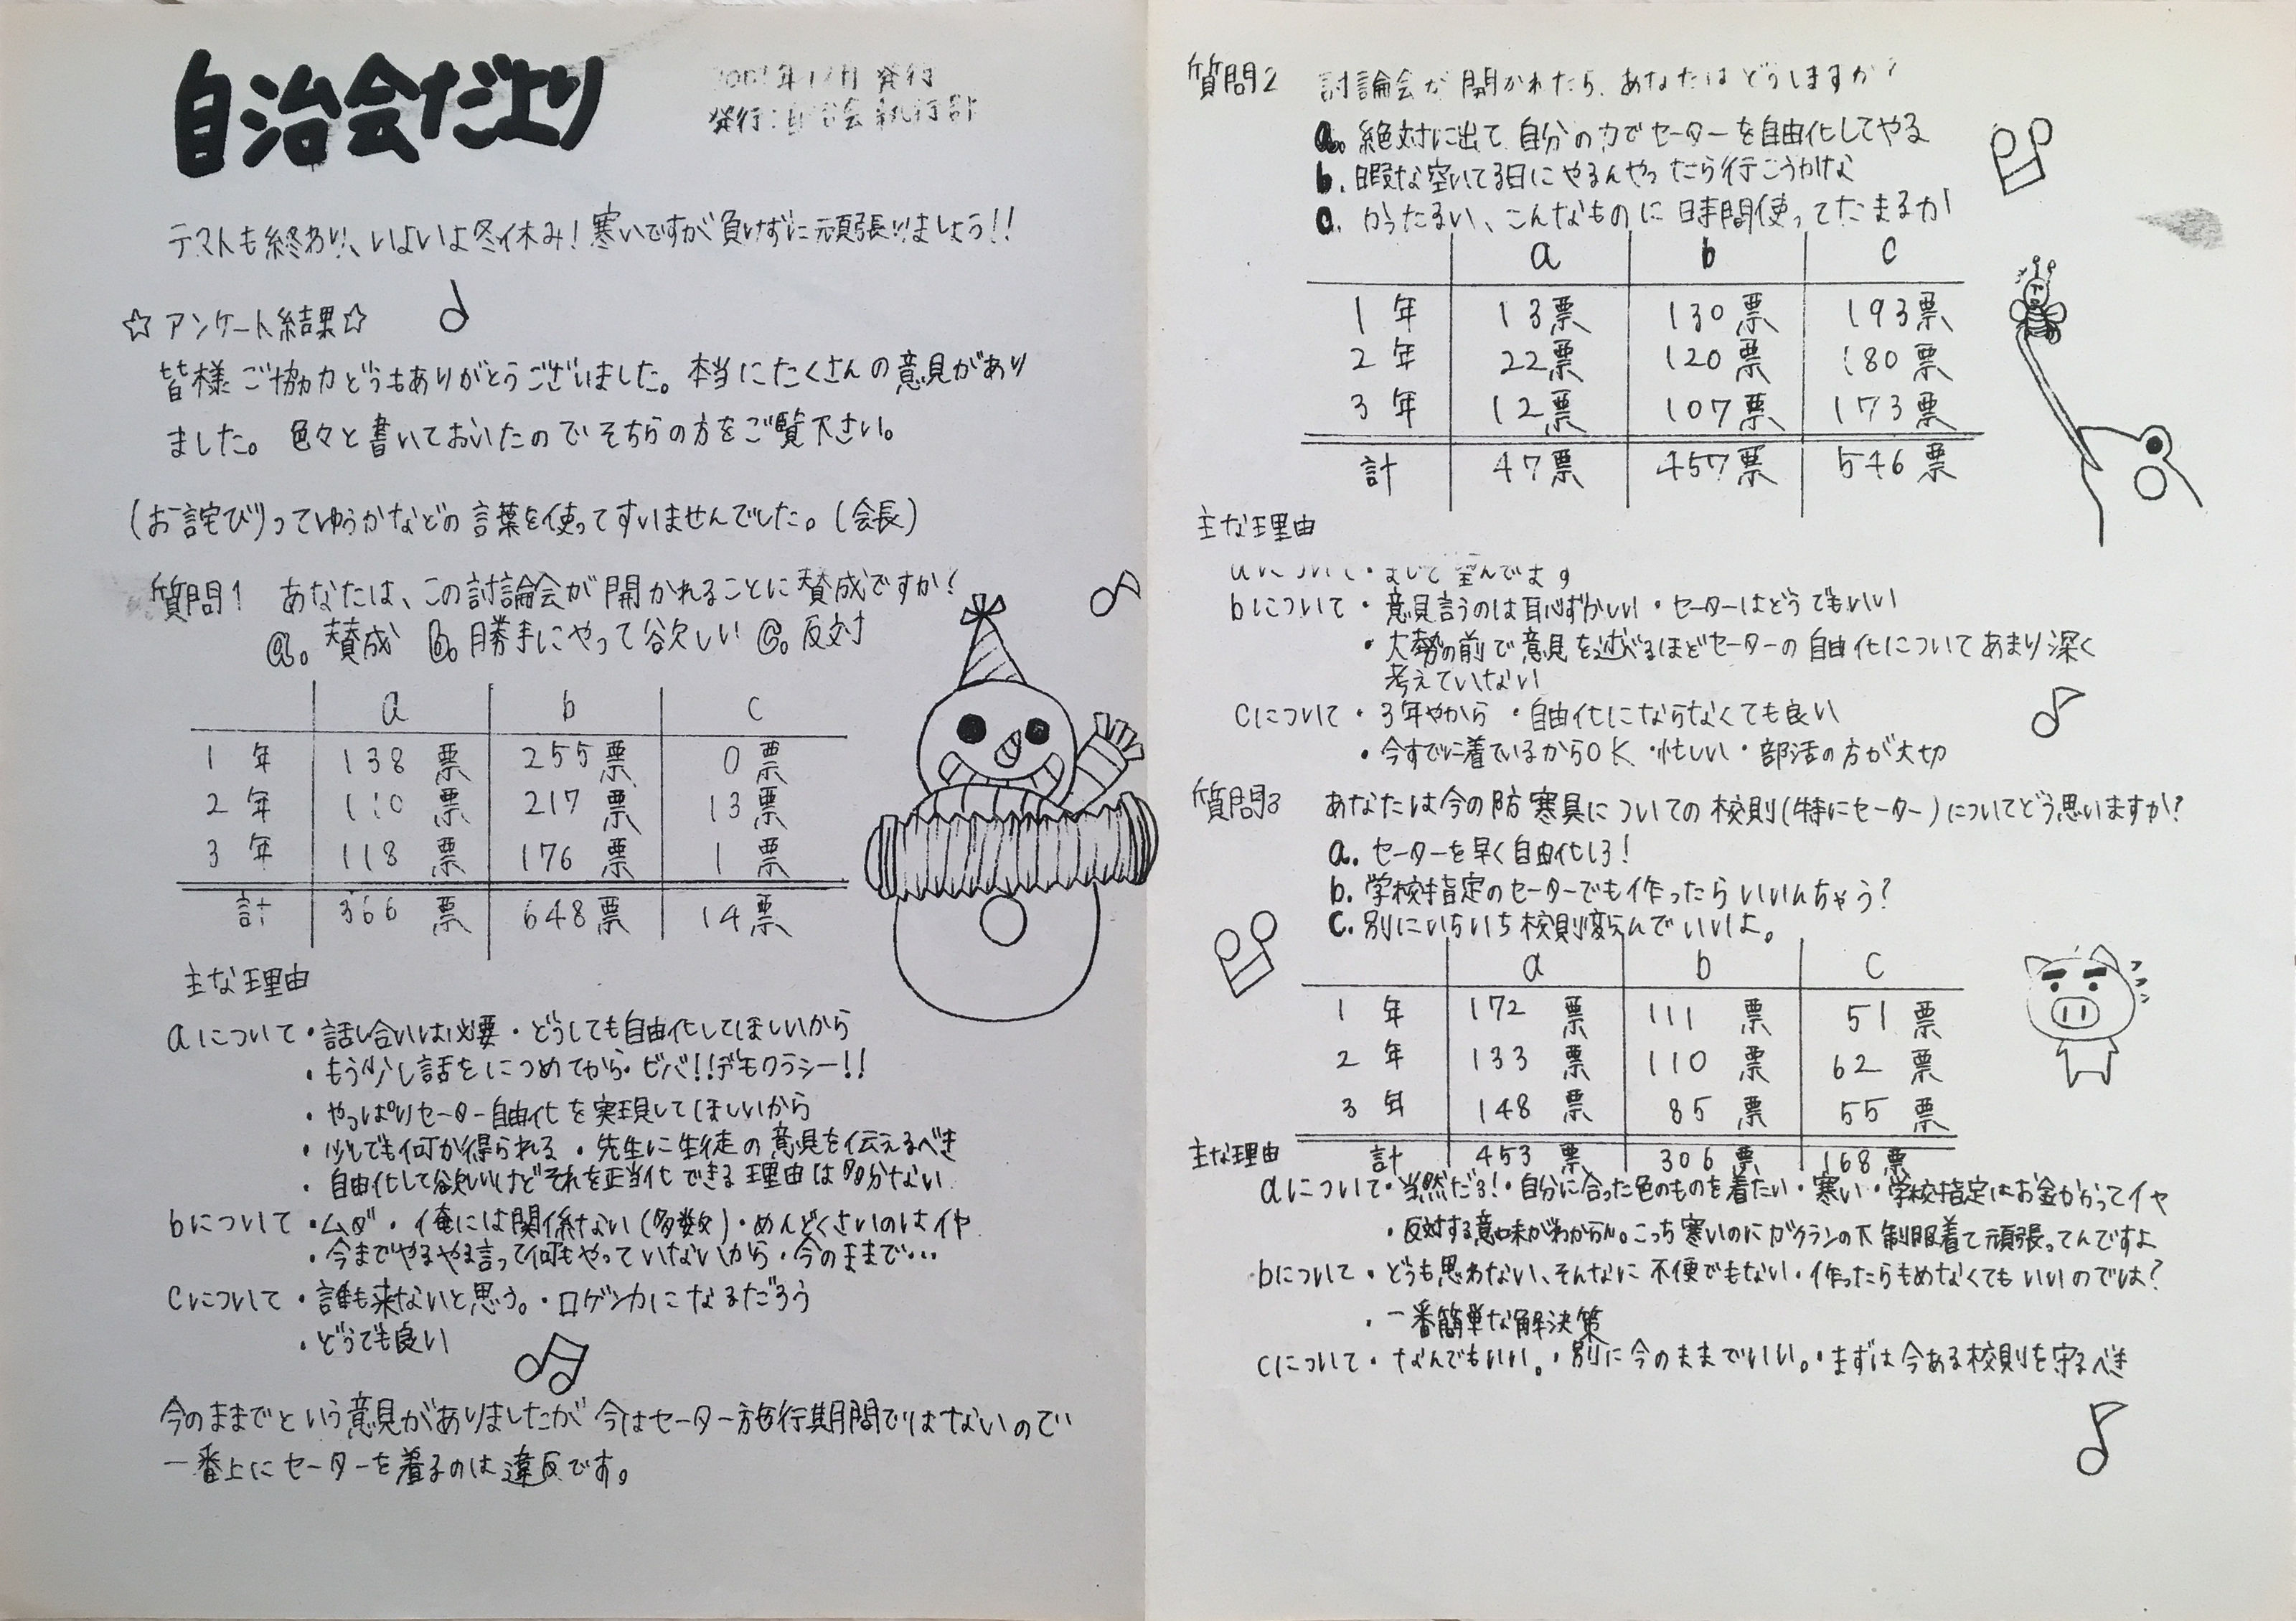 自治会だより
年12月 発行
発行:自治会執行部
テストも終わり、いよいよ冬休み!寒いですが負けずに頑張りましょう!!
☆アンケート結果☆
皆様ご協力どうもありがとうございました。本当にたくさんの意見があり
ました。色々と書いておいたのでそちらの方をご覧下さい。
(お詫び)ってゆうかなどの言葉を使ってすいませんでした。(会長)
質問1 あなたは、この討論会が開かれることに賛成ですか?
ⓐ。賛成 ⓑ。勝手にやって欲しい ⓒ。反対
a b c
1年 138票 255票 0票
2年 110票 217票 13票
3年 118票 176票 1票
計 366票 648票 14票
主な理由
aについて・話し合いは必要・どうしても自由化してほしいから
・もう少し話をにつめてから・ビバ!!デモクラシー!!
・やっぱりセーター自由化を実現してほしいから
・少しでも何か得られる・先生に生徒の意見を伝えるべき
・自由化して欲しいけどそれを正当化できる理由は多分ない
bについて・ムダ・俺には関係ない(多数)・めんどくさいのはイヤ
・今までやるやる言って何もやっていないから・今のままで…
cについて・誰も来ないと思う。・口ゲンカになるだろう
・どうでも良い
今のままでという意見がありましたが今はセーター施行期間ではないので
一番上にセーターを着るのは違反です。
質問2 討論会が開かれたら、あなたはどうしますか?
a. 絶対に出て自分の力でセーターを自由化してやる
b. 暇な空いてる日にやるんやったら行こうかな
c. かったるい、こんなものに時間使ってたまるか!
a b c
1年 13票 130票 193票
2年 22票 120票 180票
3年 12票 107票 173票
計 47票 457票 546票
主な理由
aについて・ 望んでます
bについて・意見言うのは恥ずかしい・セーターはどうでもいい
・大勢の前で意見を述べるほどセーターの自由化についてあまり深く
考えていない
cについて・3年やから・自由化にならなくても良い
・今すでに着ているからOK・忙しい・部活の方が大切
質問3 あなたは今の防寒具についての校則(特にセーター)についてどう思いますか?
a. セーターを早く自由化しろ!
b. 学校指定のセーターでも作ったらいいんちゃう?
c. 別にいちいち校則変えんでいいよ。
a b c
1年 172票 111票 51票
2年 133票 110票 62票
3年 148票 85票 55票
計 453票 306票 168票
主な理由
aについて・当然だろ!・自分に合った色のものを着たい・寒い・学校指定はお金かかってイヤ
・反対する意味がわからん。こっち寒いのにガクランの下制服着て頑張ってんですよ
bについて・どうも思わない、そんなに不便でもない・作ったらもめなくてもいいのでは?
・一番簡単な解決策
cについて・なんでもいい。・別に今のままでいい。・まずは今ある校則を守るべき